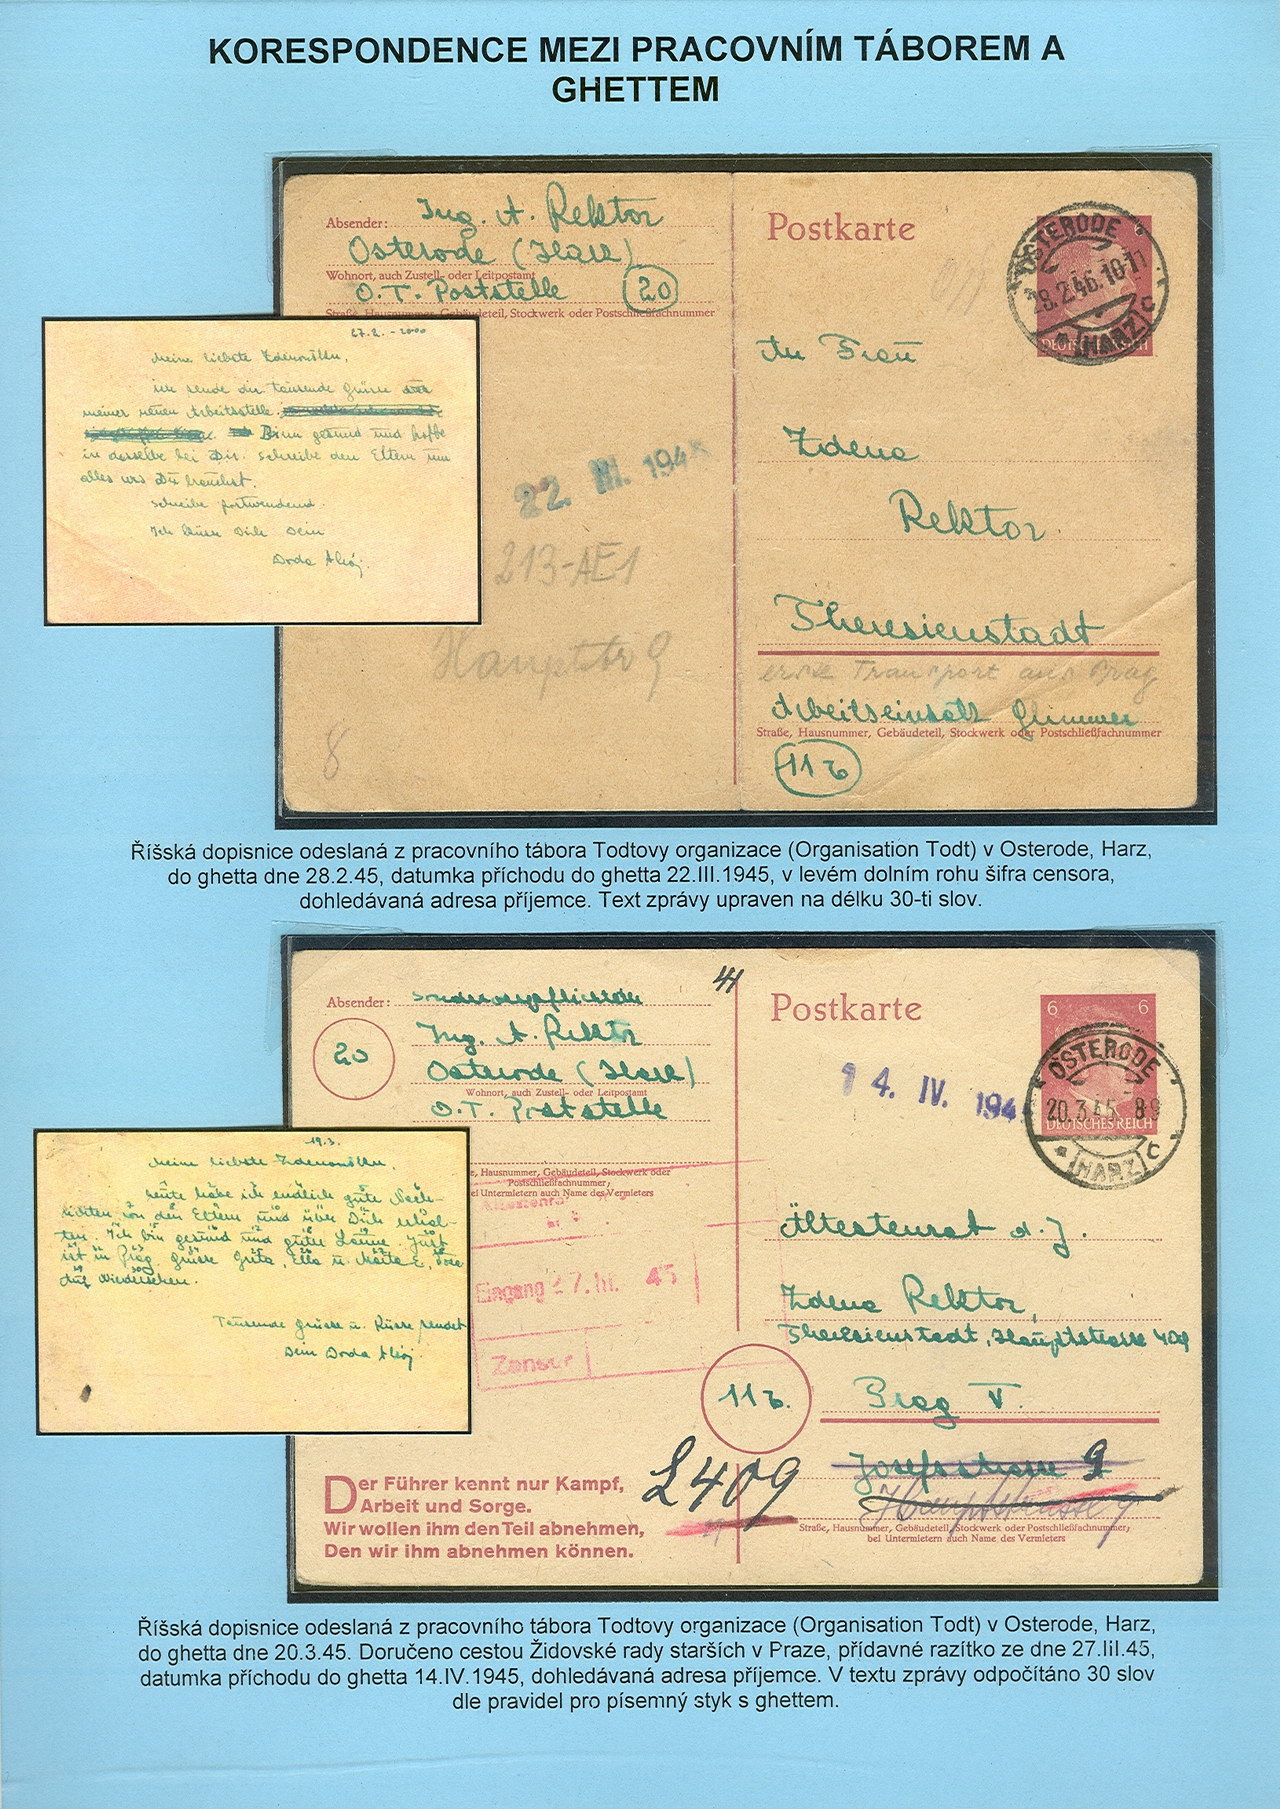 KORESPONDENCE MEZI PRACOVNÍM TÁBOREM A
GHETTEM
Absender: Ing. A. Rektor
Osterode (Harz)
Wohnort, auch Zustell- oder Leitpostamt
O.T. Poststelle 20
Straße, Hausnummer, Gebäudeteil, Stockwerk oder Postschließfachnummer
Postkarte
OSTERODE
28.2.45.10-11
(HARZ) c
DEUTSCHES REICH
An Frau
Zdena
Rektor
Theresienstadt
erste Transport aus Prag
Arbeitseinsatz
Straße, Hausnummer, Gebäudeteil, Stockwerk oder Postschließfachnummer
11b
22. III. 194
213-AE1
Hauptstr 9
8
27.2. - 2000
Meine liebste
ich sende dir tausende Grüsse
meiner neuen Arbeitsstelle.
Binn gesund und hoffe
in dasselbe bei Dir. Schreibe den Eltern um
alles was Du brauchst.
Schreibe postwendend.
Ich küsse Dich Dein
Doda Ahoj.
Říšská dopisnice odeslaná z pracovního tábora Todtovy organizace (Organisation Todt) v Osterode, Harz,
do ghetta dne 28.2.45, datumka příchodu do ghetta 22.III.1945, v levém dolním rohu šifra censora,
dohledávaná adresa příjemce. Text zprávy upraven na délku 30-ti slov.
Absender:
Ing. A. Rektor
20
Osterode (Harz)
Wohnort, auch Zustell- oder Leitpostamt
O.T. Poststelle
e, Hausnummer, Gebäudeteil, Stockwerk oder
Postschließfachnummer
bei Untermietern auch Name des Vermieters
Postkarte
6 6
OSTERODE
20.3.45. 8-9
(HARZ) c
DEUTSCHES REICH
14. IV. 194
Eingang 27. III. 45
Zensur
Ältestenrat d. J.
Zdena Rektor,
Theresienstadt, Hauptstrasse 409
11b.
Prag V.
Josefstrasse 9
Hauptstrasse 9
L409
Straße, Hausnummer, Gebäudeteil, Stockwerk oder Postschließfachnummer;
bei Untermietern auch Name des Vermieters
Der Führer kennt nur Kampf,
Arbeit und Sorge.
Wir wollen ihm den Teil abnehmen,
Den wir ihm abnehmen können.
19.3.
Meine liebste
heute habe ich endlich gute Nach-
richten von den Eltern und über Dich erhal-
ten. Ich bin gesund und guter Laune. Just
ist in Prag. Grüsse Greta, Ella u.
Auf Wiedersehen.
Tausende Grüsse u. Küsse sendet
Dein Doda Ahoj.
Říšská dopisnice odeslaná z pracovního tábora Todtovy organizace (Organisation Todt) v Osterode, Harz,
do ghetta dne 20.3.45. Doručeno cestou Židovské rady starších v Praze, přídavné razítko ze dne 27.III.45,
datumka příchodu do ghetta 14.IV.1945, dohledávaná adresa příjemce. V textu zprávy odpočítáno 30 slov
dle pravidel pro písemný styk s ghettem.